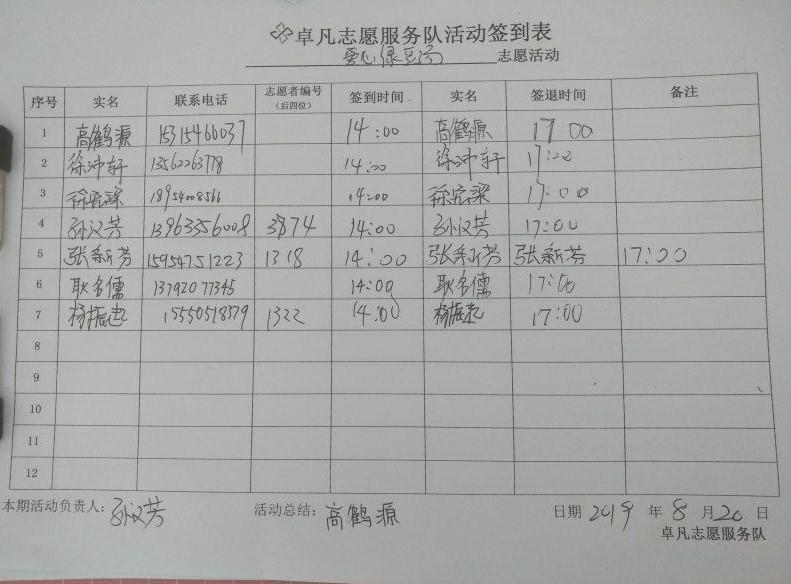 卓凡志愿服务队活动签到表
爱心绿豆汤 志愿活动
序号 实名 联系电话 志愿者编号（后四位） 签到时间 实名 签退时间 备注
1 高鹤源 15315466037 14:00 高鹤源 17:00
2 徐沛轩 13562263778 14:00 徐沛轩 17:00
3 18954008566 14:00 17:00
4 孙汉芳 13963356008 3874 14:00 孙汉芳 17:00
5 张新芳 15954751223 1318 14:00 张新芳 张新芳 17:00
6 耿名儒 13792077345 14:00 耿名儒 17:00
7 杨振起 15550518379 1322 14:00 杨振起 17:00
8
9
10
11
12
本期活动负责人：孙汉芳 活动总结：高鹤源 日期 2019 年 8 月 20 日
卓凡志愿服务队